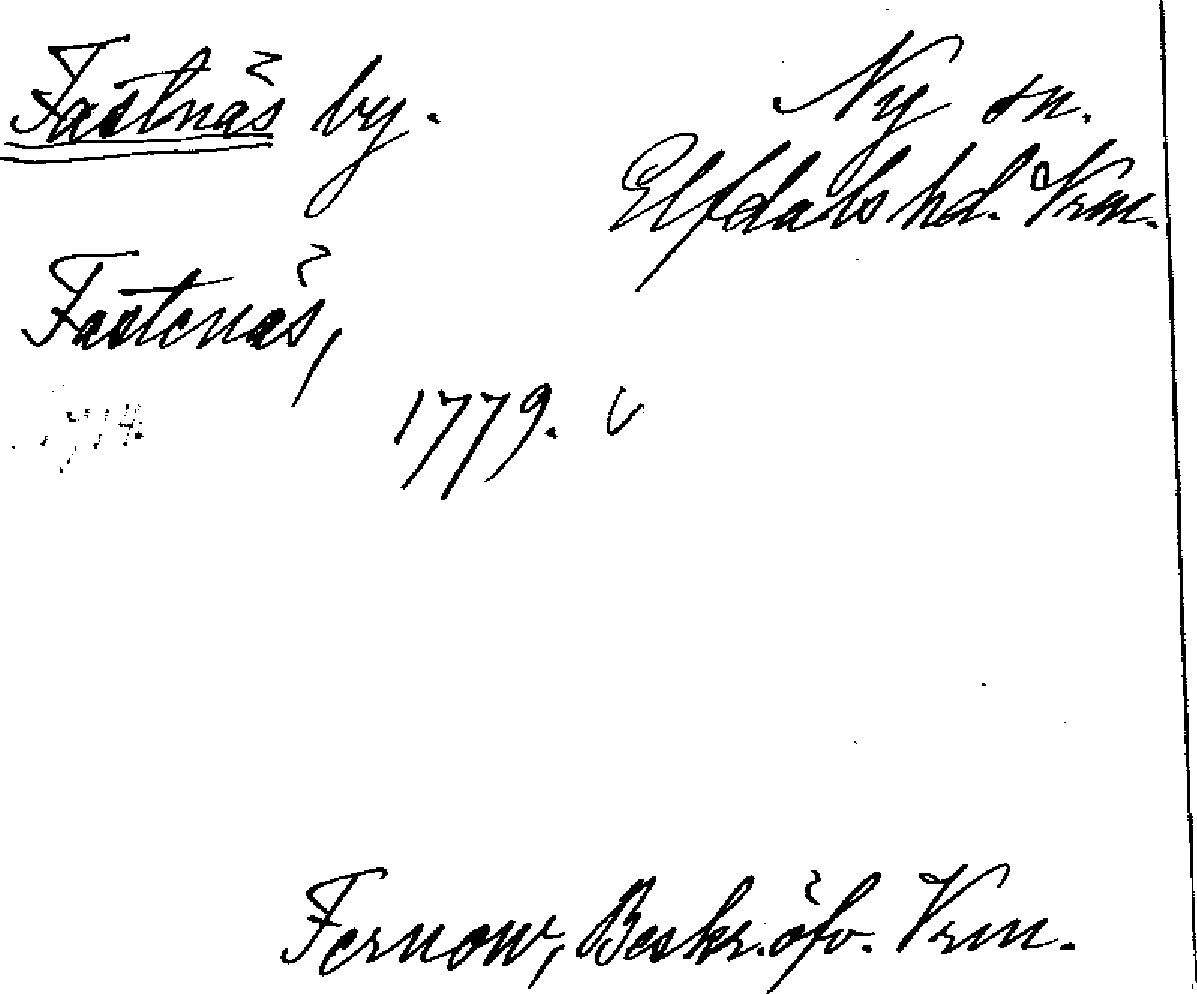 Fastnäs by.
Ny sn.
Elfdals hd. Vrm.
Fastenäs,
1779. v
Fernow, Beskr. öfv. Vrm.